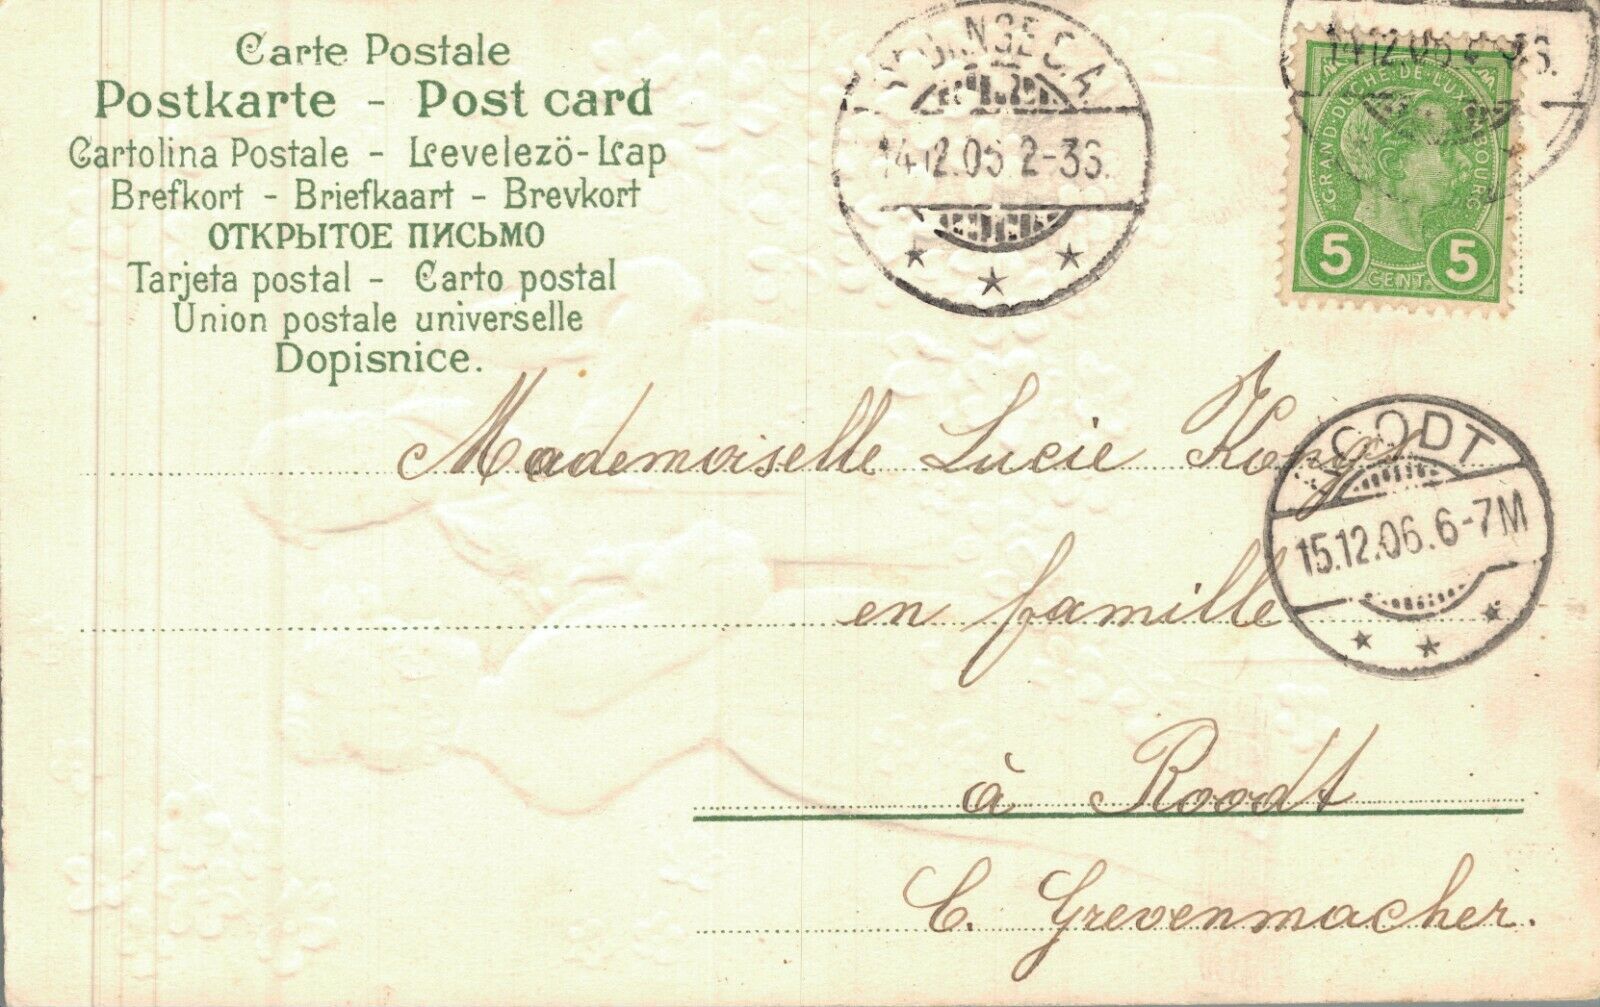 Carte Postale
Postkarte - Post card
Cartolina Postale - Levelezö-Lap
Brefkort - Briefkaart - Brevkort
ОТКРЫТОЕ ПИСЬМО
Tarjeta postal - Carto postal
Union postale universelle
Dopisnice.
14.12.05 2-3S.
14.12.05 2-3S.
GRAND-DUCHÉ-DE-LUXEMBOURG
5 CENT. 5
Mademoiselle Lucie
ROODT
15.12.06.6-7M
en famille
à Roodt
C. Grevenmacher.